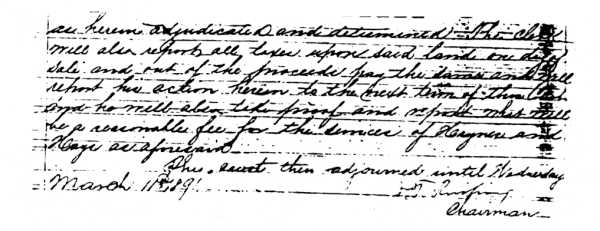 as herein adjudicated and determined. The clerk
will also report all taxes upon said land on day of
sale and out of the proceeds pay the same and will
report his action herein to the next term of this Court
and he will also take proof and report what will
be a reasonable fee for the services of Haynes and
Hays as aforesaid
The court then adjourned until Wednesday
March 11th 189
Chairman